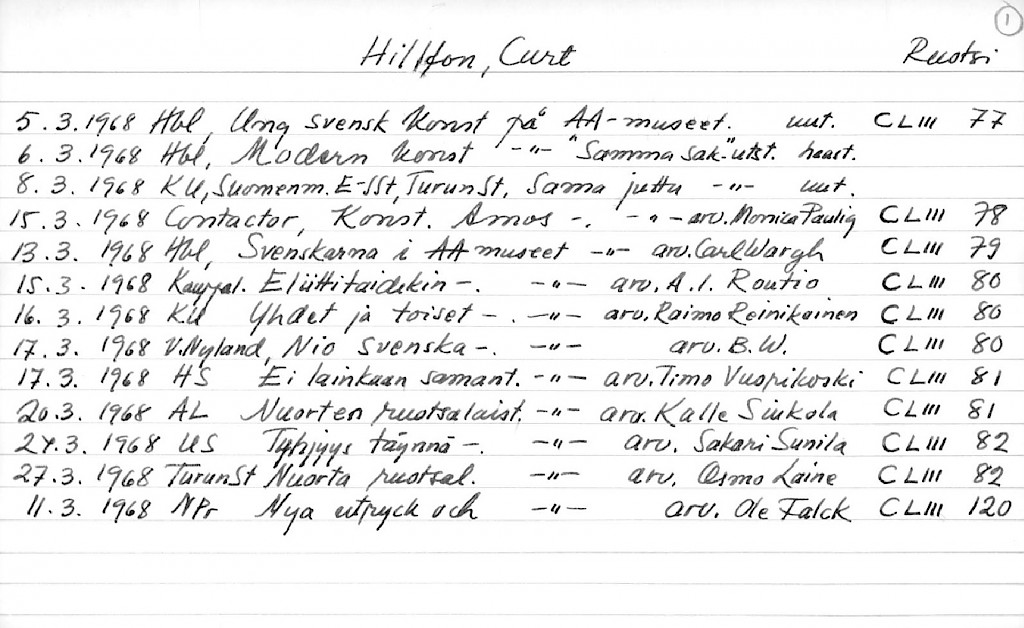 1
Hillfon, Curt Ruotsi
5. 3. 1968 Hbl, Ung svensk konst på AA-museet. uut. CLIII 77
6. 3. 1968 Hbl, Modern konst -"- "Samma sak"-utst. haast.
8. 3. 1968 KU, Suomenm. E-SSt, TurunSt, Sama juttu -"- uut.
15. 3. 1968 Contactor, Konst. Amos -. -"- arv. Monica Paulig CLIII 78
13. 3. 1968 Hbl, Svenskarna i AA museet -"- arv. Carl Wargh CLIII 79
15. 3. 1968 Kauppal. Eliittitaidekin -. -"- arv. A.I. Routio CLIII 80
16. 3. 1968 KU Yhdet ja toiset -. -"- arv. Raimo Reinikainen CLIII 80
17. 3. 1968 V.Nyland, Nio svenska -. -"- arv. B.W. CLIII 80
17. 3. 1968 HS Ei lainkaan samant. -"- arv. Timo Vuorikoski CLIII 81
20.3. 1968 AL Nuorten ruotsalaist. -"- arv. Kalle Siukola CLIII 81
24.3. 1968 US Tyhjyys täynnä -. -"- arv. Sakari Sunila CLIII 82
27.3. 1968 TurunSt Nuorta ruotsal. -"- arv. Osmo Laine CLIII 82
11. 3. 1968 NPr Nya uttryck och -"- arv. Ole Falck CLIII 120